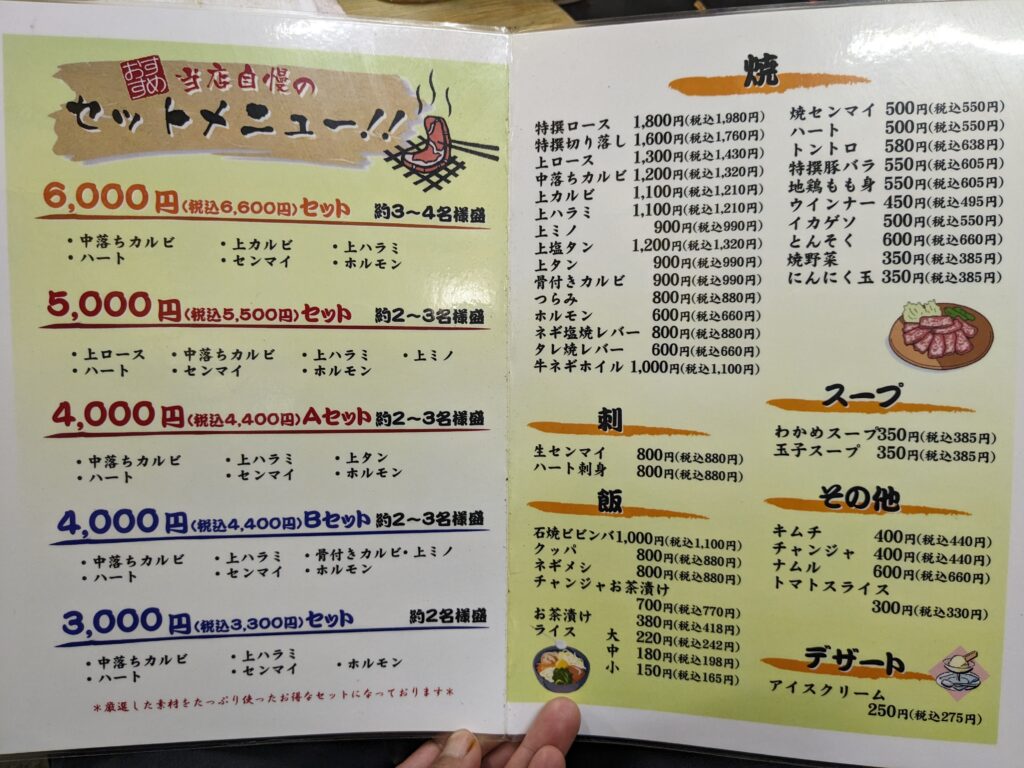 おすすめ
当店自慢の
セットメニュー!!
6,000円(税込6,600円)セット 約3〜4名様盛
・中落ちカルビ ・上カルビ ・上ハラミ
・ハート ・センマイ ・ホルモン
5,000円(税込5,500円)セット 約2〜3名様盛
・上ロース ・中落ちカルビ ・上ハラミ ・上ミノ
・ハート ・センマイ ・ホルモン
4,000円(税込4,400円)Aセット 約2〜3名様盛
・中落ちカルビ ・上ハラミ ・上タン
・ハート ・センマイ ・ホルモン
4,000円(税込4,400円)Bセット 約2〜3名様盛
・中落ちカルビ ・上ハラミ ・骨付きカルビ・上ミノ
・ハート ・センマイ ・ホルモン
3,000円(税込3,300円)セット 約2名様盛
・中落ちカルビ ・上ハラミ ・ホルモン
・ハート ・センマイ
*厳選した素材をたっぷり使ったお得なセットになっております*
焼
特撰ロース 1,800円(税込1,980円)
特撰切り落し 1,600円(税込1,760円)
上ロース 1,300円(税込1,430円)
中落ちカルビ 1,200円(税込1,320円)
上カルビ 1,100円(税込1,210円)
上ハラミ 1,100円(税込1,210円)
上ミノ 900円(税込990円)
上塩タン 1,200円(税込1,320円)
上タン 900円(税込990円)
骨付きカルビ 900円(税込990円)
つらみ 800円(税込880円)
ホルモン 600円(税込660円)
ネギ塩焼レバー 800円(税込880円)
タレ焼レバー 600円(税込660円)
牛ネギホイル 1,000円(税込1,100円)
焼センマイ 500円(税込550円)
ハート 500円(税込550円)
トントロ 580円(税込638円)
特撰豚バラ 550円(税込605円)
地鶏もも身 550円(税込605円)
ウインナー 450円(税込495円)
イカゲソ 500円(税込550円)
とんそく 600円(税込660円)
焼野菜 350円(税込385円)
にんにく玉 350円(税込385円)
刺
生センマイ 800円(税込880円)
ハート刺身 800円(税込880円)
飯
石焼ビビンバ 1,000円(税込1,100円)
クッパ 800円(税込880円)
ネギメシ 800円(税込880円)
チャンジャお茶漬け
700円(税込770円)
お茶漬け 380円(税込418円)
ライス 大 220円(税込242円)
中 180円(税込198円)
小 150円(税込165円)
スープ
わかめスープ 350円(税込385円)
玉子スープ 350円(税込385円)
その他
キムチ 400円(税込440円)
チャンジャ 400円(税込440円)
ナムル 600円(税込660円)
トマトスライス
300円(税込330円)
デザート
アイスクリーム
250円(税込275円)